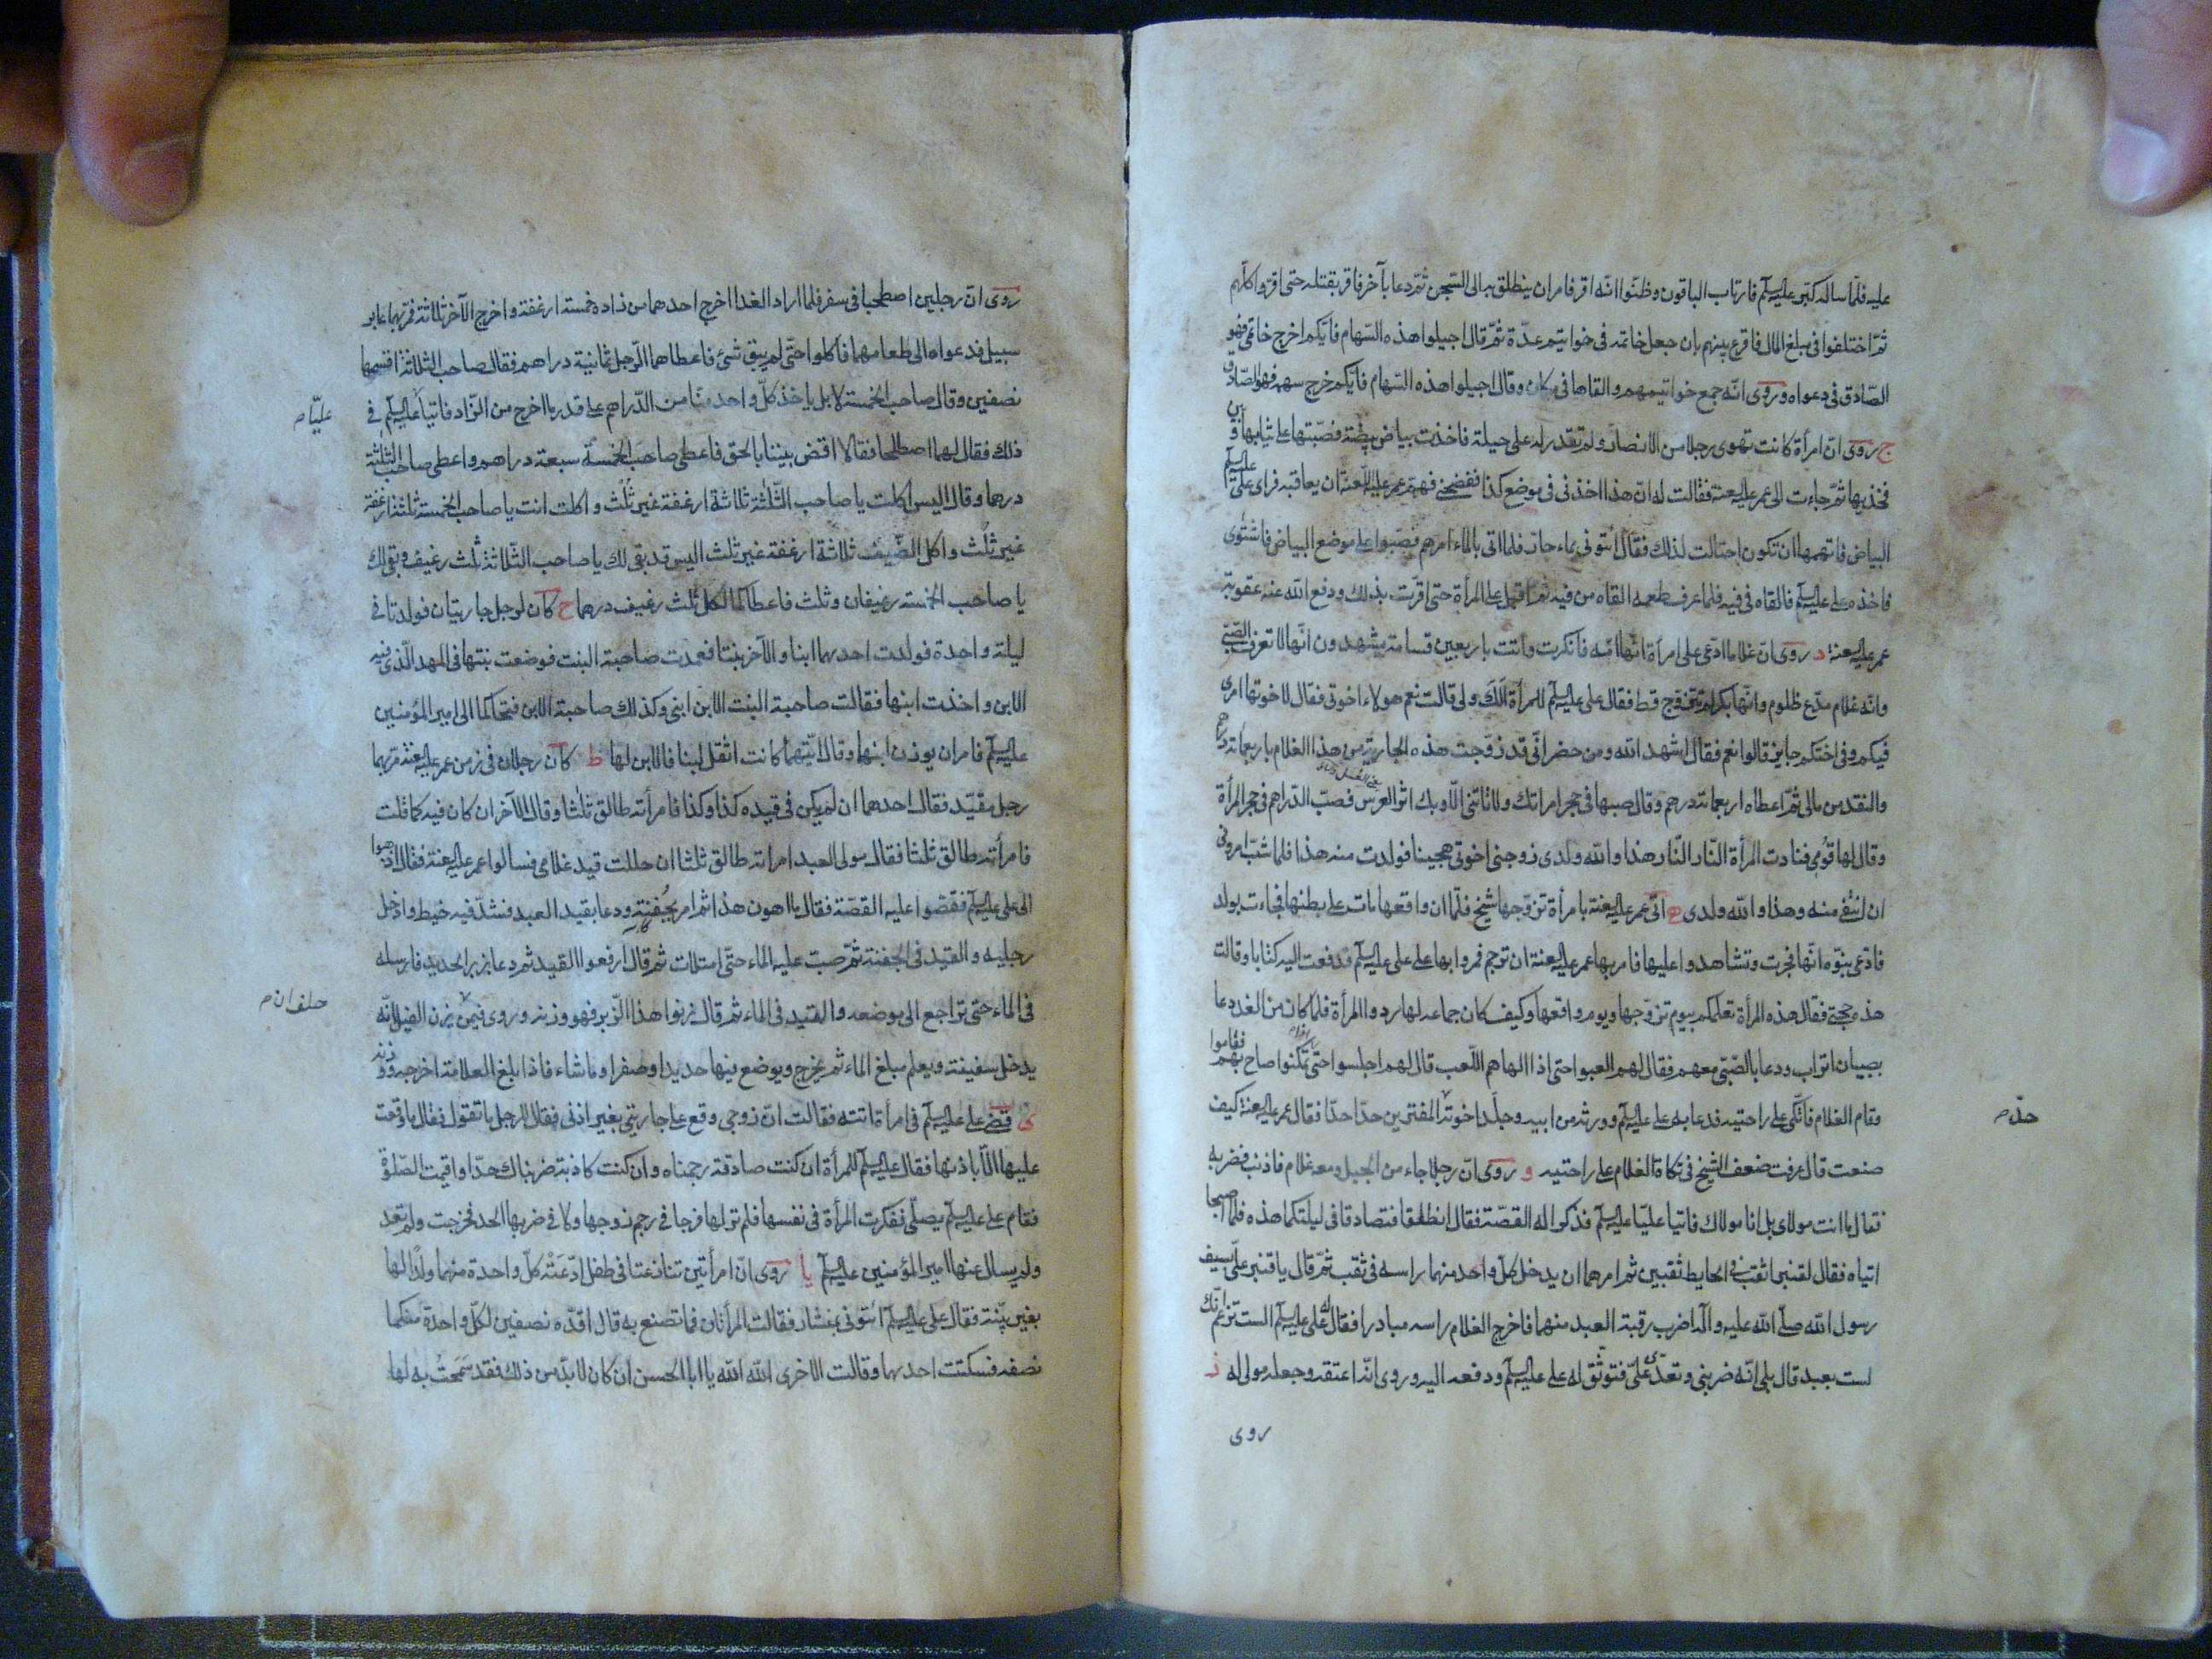 عليه فلمّا ساله كبّر عليه‌السلم فارتاب الباقون وظنّوا انّه اقر فامر ان ينطلق به الى السّجن ثمّ دعا بآخر فاقر بقتله حتى اقرّوا كلّهم
ثمّ اختلفوا فى مبلغ المال فاقرع بينهم بان جعل خاتمه فى خواتيم عدّة ثمّ قال اجيلوا هذه السّهام فايّكم اخرج خاتمى فهو
الصّادق فى دعواه وروى انّه جمع خواتيمهم والقاها فى مكان وقال اجيلوا هذه السّهام فايّكم خرج سهمه فهو الصّادق
ج روى انّ امرأة كانت تهوى رجلا من الانصار ولم تقدر له على حيلة فاخذت بياض بيضة فصبّتها على ثيابها وبين
فخذيها ثمّ جاءت الى عمر عليه‌اللعنة فقالت له انّ هذا اخذنى فى موضع كذا ففضحنى فهمّ عمر عليه‌اللّعنة ان يعاقبه فراى علىّ عليه‌السلم
البياض فاتهمها ان تكون احتالت لذلك فقال ائتونى بماء حار فلما اتى بالماء امرهم فصبّوا على موضع البياض فاشتوى
فاخذه على عليه‌السلم فالقاه فى فيه فلما عرف طعمه القاه من فيه ثم اقبل على المرأة حتى اقرّت بذلك ودفع الله عنه عقوبة
عمر عليه‌اللعنة د روى انّ غلاما ادّعى على امرأة انّها امّه فانكرت وأتت باربعين قسامة يشهدون انّها لا تعرف الصّبى
وانّه غلام مدّع ظلوم وانّها بكر لم تتزوّج قط فقال على عليه‌السلم للمرأة الَكَ ولى قالت نعم هولاء اخوتى فقال لاخوتها امرى
فيكم وفى اختكم جايز قالوا نعم فقال اشهد الله ومن حضر انّى قد زوّجت هذه الجارية من هذا الغلام باربعمائة درهم
والنقد من مالى ثمّ اعطاه اربعمائة درهم وقال صبها فى حجر امراتك ولا تاتنى الّا وبك اثر العرس فصبّ الدّراهم فى حجر المرأة
وقال لها قومى فنادت المرأة النّار النّار هذا والله ولدى زوجنى اخوتى هجينا فولدت منه هذا فلما شبّ امرونى
ان انتفى منه وهذا والله ولدى ه اتى عمر عليه‌اللعنة بامرأة تزوّجها شيخ فلمّا ان واقعها مات على بطنها فجاءت بولد
فادّعى بنوّه انّها فجرت وتشاهدوا عليها فامر بها عمر عليه‌اللعنة ان ترجم فمروا بها على على عليه‌السلم فدفعت اليه كتابا وقالت
هذه حجتى فقال هذه المرأة تعلمكم بيوم تزوّجها ويوم واقعها وكيف كان جماعه لها ردوا المرأة فلما كان من الغد دعا
بصبيان اتراب ودعا بالصّبّى معهم فقال لهم العبوا حتى اذا الهاهم اللّعب قال لهم اجلسوا حتى تمكّنوا صاح بهم فقاموا
وقام الغلام فاتّكى على راحتيه فدعا به على عليه‌السلم وورثه من ابيه وجلّد اخوته المفترين حدّا حدّا فقال عمر عليه‌اللعنة كيف
حدّه
صنعت قال عرفت ضعف الشيخ فى تكاة الغلام على راحتيه و روى انّ رجلا جاء من الجبل ومعه غلام فاذنب فضربه
فقال ما انت مولاى بل انا مولاك فاتيا عليّا عليه‌السلم فذكرا له القصّة فقال انطلقا فتصادقا فى ليلتكما هذه فلما اصبحا
اتياه فقال لقنبر اثقب فى الحايط ثقبين ثم امرهما ان يدخل كلّ واحد منهما راسه فى ثقب ثمّ قال يا قنبر علىّ بسيف
رسول الله صلّى الله عليه وآله اضرب رقبة العبد منهما فاخرج الغلام راسه مبادرا فقال له على عليه‌السلم الست تزعم انّك
لست بعبد قال بلى انّه ضربنى وتعدّى علىّ فتوثّق له على عليه‌السلم ودفعه اليه وروى انّه اعتقه وجعله مولى له ز
روى
روى انّ رجلين اصطحبا فى سفر فلما ارادا الغدا اخرج احدهما من زاده خمسة ارغفة واخرج الآخر ثلاثة فمرّ بهما عابر
سبيل فدعواه الى طعامهما فأكلوا حتّى لم يبق شئ فاعطاهما الرّجل ثمانية دراهم فقال صاحب الثلاثة اقسمها
نصفين وقال صاحب الخمسة لا بل ياخذ كلّ واحد منّا من الدّراهم على قدر ما اخرج من الزّاد فاتيا عليه‌السلم فى
عليّا
ذلك فقال لهما اصطلحا فقالا اقض بيننا بالحق فاعطى صاحب الخمسة سبعة دراهم واعطى صاحب الثلثة
درهما وقال اليس اكلت يا صاحب الثّلثة ثلاثة ارغفة غير ثُلُث واكلت انت يا صاحب الخمسة ثلثة ارغفة
غير ثلُث واكل الضّيف ثلاثة ارغفة غير ثلث اليس قد بقى لك يا صاحب الثّلاثة ثلُث رغيف وبقى لك
يا صاحب الخمسة رغيفان وثلث فاعطاكما لكل ثلث رغيف درهما ح كان لرجل جاريتان فولدتا فى
ليلة واحدة فولدت احديهما ابنا والآخر بنتا فعمدت صاحبة البنت فوضعت بنتها فى المهد الّذى فيه
الابن واخذت ابنها فقالت صاحبة البنت الابن ابنى وكذلك صاحبة الابن فتحاكما الى امير المؤمنين
عليه‌السلم فامر ان يوزن لبنهما وقال ايّتهما كانت اثقل لبنا فالابن لها ط كان رجلان فى زمن عمر عليه‌اللعنة مرّ بهما
رجل مقيّد فقال احدهما ان لم يكن فى قيده كذا وكذا فامرأته طالق ثلثا وقال الآخر ان كان فيه كما قلت
فامرأته طالق ثلثا فقال مولى العبد امراته طالق ثلثا ان حللت قيد غلامى فسالوا عمر عليه‌اللعنة فقال اذهبوا
الى على عليه‌السلم فقصّوا عليه القصّة فقال ما اهون هذا ثم امر بجُفنة ودعا بقيد العبد فشدّ فيه خيط وادخل
رجليه والقيد فى الجفنة ثمّ صبّ عليه الماء حتّى امتلات ثم قال ارفعوا القيد ثم دعا بزبر الحديد فارسله
فى الماء حتى تراجع الى موضعه والقيد فى الماء ثم قال زنوا هذا الزّبر فهو وزنه وروى فيمن يزن الفيل انّه
حلف ان
يدخل سفينة ويعلم مبلغ الماء ثم يخرج ويوضع فيها حديدا وصفرا وما شاء فاذا بلغ العلامة اخرجه ووزنه
ى قضى على عليه‌السلم فى امرأة اتته فقالت انّ زوجى وقع على جاريتى بغير اذنى فقال للرجل ما تقول فقال ما وقعت
عليها الّا باذنها فقال عليه‌السلم للمرأة ان كنت صادقة رجمناه وان كنت كاذبة ضربناك حدّا واقيمت الصّلوة
فقام على عليه‌السلم يصلّى ففكرت المرأة فى نفسها فلم تر لها فرجا فى رجم زوجها ولا فى ضربها الحد فخرجت ولم تعد
ولم يسال عنها امير المؤمنين عليه‌السلم يا روى انّ امرأتين تنازعتا فى طفل ادّعَتْه كلّ واحدة منهما ولدًا لها
بغير بيّنة فقال على عليه‌السلم ائتونى بمنشار فقالت المرأتان فما تصنع به قال اقدّه نصفين لكلّ واحدة منكما
نصفه فسكتت احديهما وقالت الاخرى الله الله يا ابا الحسن ان كان لا بدّ من ذلك فقد سَمَحتُ به لها